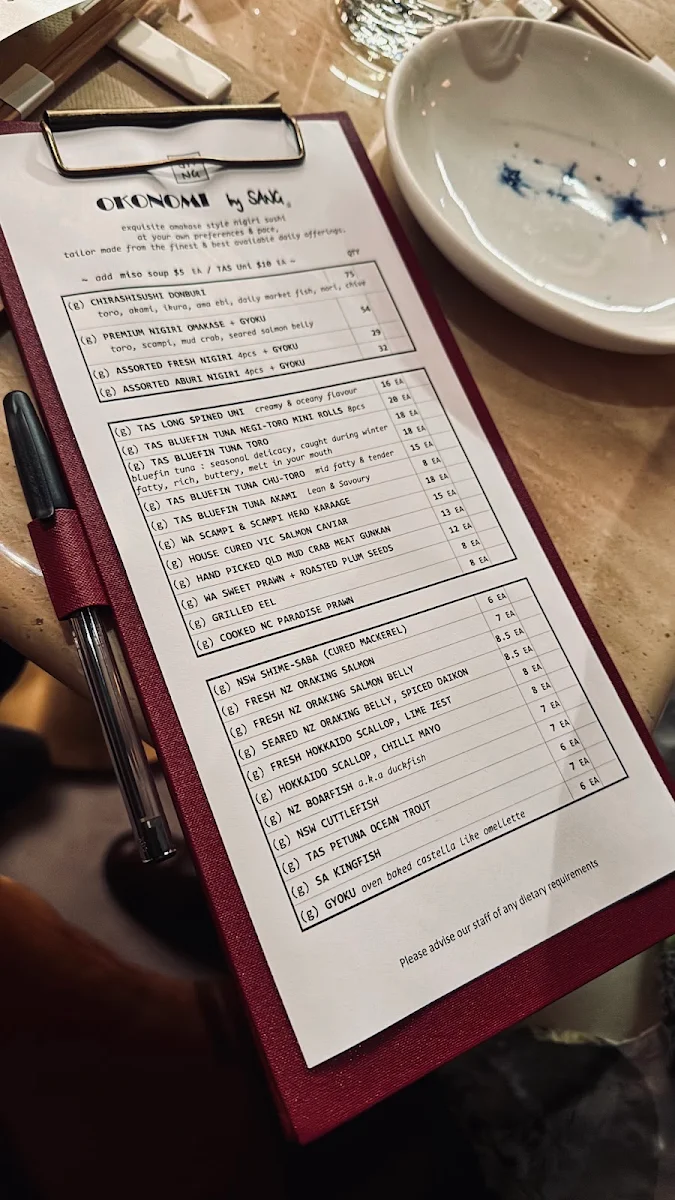 NG
OKONOMI by SANG.
exquisite omakase style nigiri sushi
at your own preferences & pace,
tailor made from the finest & best available daily offerings.
~ add miso soup $5 EA / TAS Uni $10 EA ~
QTY
(g) CHIRASHISUSHI DONBURI 75
toro, akami, ikura, ama ebi, daily market fish, nori, chive
(g) PREMIUM NIGIRI OMAKASE + GYOKU 54
toro, scampi, mud crab, seared salmon belly
(g) ASSORTED FRESH NIGIRI 4pcs + GYOKU 29
(g) ASSORTED ABURI NIGIRI 4pcs + GYOKU 32
(g) TAS LONG SPINED UNI creamy & oceany flavour 16 EA
(g) TAS BLUEFIN TUNA NEGI-TORO MINI ROLLS 8pcs 20 EA
(g) TAS BLUEFIN TUNA TORO 18 EA
bluefin tuna : seasonal delicacy, caught during winter 18 EA
fatty, rich, buttery, melt in your mouth
(g) TAS BLUEFIN TUNA CHU-TORO mid fatty & tender 15 EA
(g) TAS BLUEFIN TUNA AKAMI Lean & Savoury 8 EA
(g) WA SCAMPI & SCAMPI HEAD KARAAGE 18 EA
(g) HOUSE CURED VIC SALMON CAVIAR 15 EA
(g) HAND PICKED QLD MUD CRAB MEAT GUNKAN 13 EA
(g) WA SWEET PRAWN + ROASTED PLUM SEEDS 12 EA
(g) GRILLED EEL 8 EA
(g) COOKED NC PARADISE PRAWN 8 EA
(g) NSW SHIME-SABA (CURED MACKEREL) 6 EA
(g) FRESH NZ ORAKING SALMON 7 EA
(g) FRESH NZ ORAKING SALMON BELLY 8.5 EA
(g) SEARED NZ ORAKING BELLY, SPICED DAIKON 8.5 EA
(g) FRESH HOKKAIDO SCALLOP, LIME ZEST 8 EA
(g) HOKKAIDO SCALLOP, CHILLI MAYO 8 EA
(g) NZ BOARFISH a.k.a duckfish 7 EA
(g) NSW CUTTLEFISH 7 EA
(g) TAS PETUNA OCEAN TROUT 6 EA
(g) SA KINGFISH 7 EA
(g) GYOKU oven baked castella like omellette 6 EA
Please advise our staff of any dietary requirements